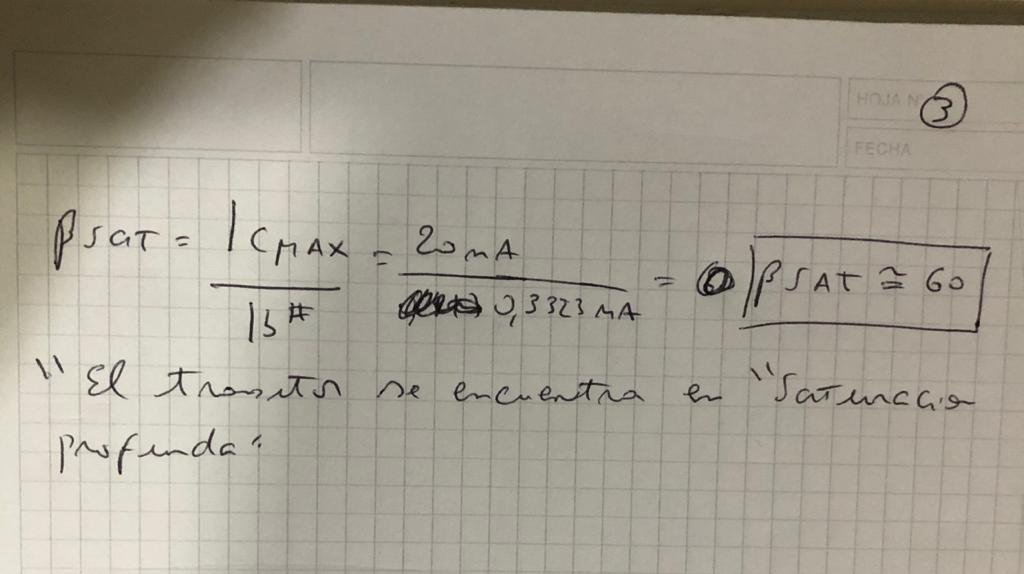 HOJA Nº 3
FECHA
βSAT = ICMAX / Ib# = 20mA / 0,3323mA = βSAT ≅ 60
"El transistor se encuentra en "Saturacion
profunda"